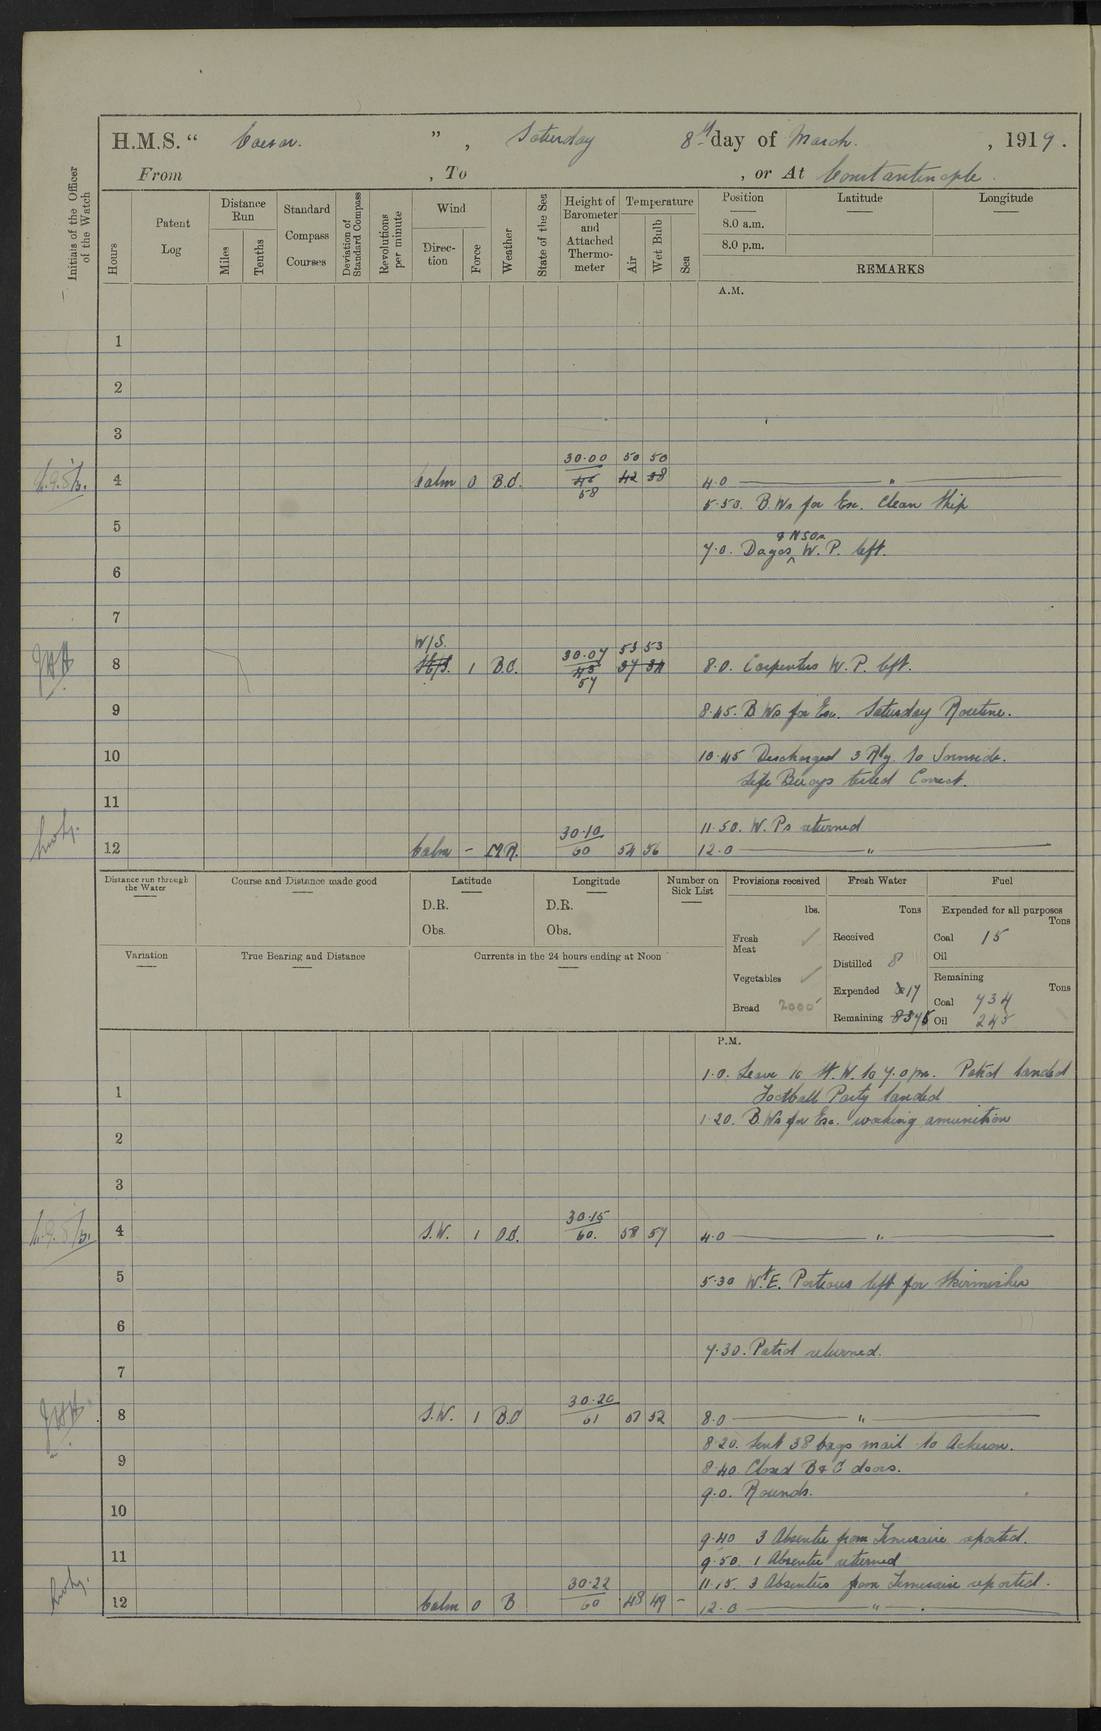 H.M.S. “ Caesar. ” , Saturday 8th day of March. , 1919.
From , To , or At Constantinople.
Initials of the Officer of the Watch
Hours
Patent Log
Distance Run
Miles
Tenths
Standard Compass Courses
Deviation of Standard Compass
Revolutions per minute
Wind
Direction
Force
Weather
State of the Sea
Height of Barometer and Attached Thermometer
Temperature
Air
Wet Bulb
Sea
Position Latitude Longitude
8.0 a.m.
8.0 p.m.
REMARKS
A.M.
1
2
3
30.00 50 50
4 Calm 0 B.C. 46 42 38 4.0 ——— " ———
58
5.50. B Ws for Ex. Clean Ship
5
& NSOs
7.0. Dagos ^ W.P. left.
6
7
W/S. 30.07 53 53
8 1 B.C. 43 37 34 8.0. Carpenters W.P. left.
57
9 8.45. B Ws for Ex. Saturday Routine.
10 10.45 Discharged 3 Rtg. to
Life Buoys tested Correct.
11
11.50. W.Ps returned
30.10
12 Calm - M.R. 60 54 56 12.0 ——— " ———
Distance run through the Water
Course and Distance made good
Latitude
D.R.
Obs.
Longitude
D.R.
Obs.
Number on Sick List
Variation
True Bearing and Distance
Currents in the 24 hours ending at Noon
Provisions received
lbs.
Fresh Meat ✓
Vegetables ✓
Bread 2000
Fresh Water
Tons
Received
Distilled 8
Expended 17
Remaining 8375
Fuel
Expended for all purposes
Tons
Coal 15
Oil
Remaining
Tons
Coal 734
Oil 245
P.M.
1.0. Leave to St. W. to 7.0 pm. Patrol landed
1 Football Party landed
1.20. B Ws for Exc. working amunition
2
3
30.15
4 S.W. 1 O.C. 60. 58 57 4.0 ——— " ———
5 5.30 Wt E. Porteous left for Skirmisher
6
7.30. Patrol returned.
7
30.20
8 S.W. 1 B.C 61 52 8.0 ——— " ———
8.20. Sent 38 bags mail to Acheron.
9 8.40. Closed B & C doors.
9.0. Rounds.
10
9.40 3 Absentee from Temeraire reported.
11 9.50. 1 Absentee returned
30.22 11.15. 3 Absentees from Temeraire reported.
12 Calm 0 B 60 48 49 – 12.0 ——— " ———